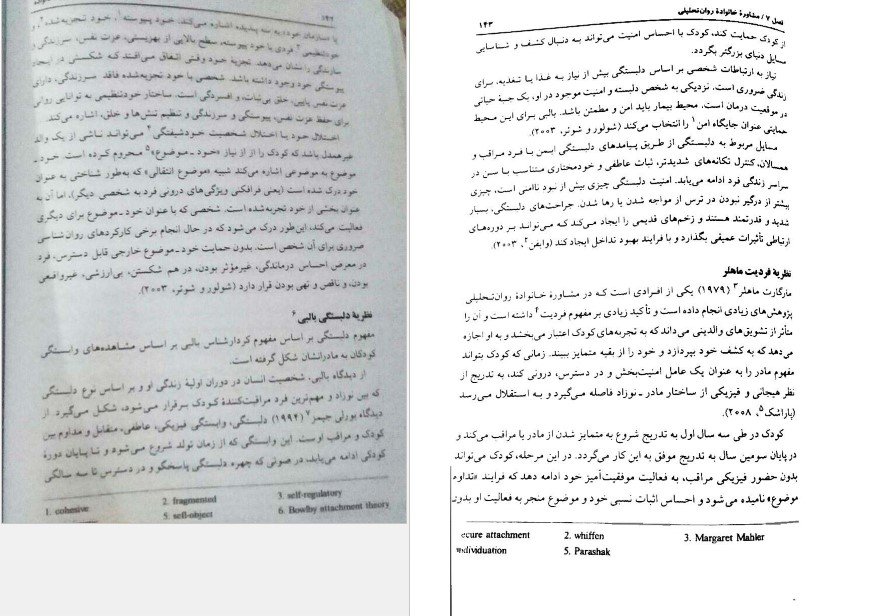 ۱۴۲
یا سازمان خود، به سه پدیده اشاره می‌کند. خود پیوسته۱، خود تجزیه‌شده۲ و
خودتنظیمی۳. فردی با خود پیوسته، سطح بالایی از بهزیستی، عزت نفس، سرزندگی و
سازندگی را نشان می‌دهد. تجزیه خود وقتی اتفاق می‌افتد که شکستی در ایجاد
پیوستگی خود وجود داشته باشد. شخصی با خود تجزیه‌شده فاقد سرزندگی، دارای
عزت نفس پایین، خلق بی‌ثبات، و افسردگی است. ساختار خودتنظیمی به توانایی روانی
برای حفظ عزت نفس، پیوستگی و سرزندگی و تنظیم تنش‌ها و خلق، اشاره می‌کند.
اختلال خود یا اختلال شخصیت خودشیفتگی۴ می‌تواند ناشی از یک والد
غیرهمدل باشد که کودک را از نیاز «خود ـ موضوع»۵ محروم کرده است. خود ـ
موضوع به موضوعی اشاره می‌کند شبیه «موضوع انتقالی» که به‌طور شناختی به عنوان
خود درک شده است (یعنی فرافکنی ویژگی‌های درونی فرد به شخصی دیگر)، اما آن به
عنوان بخشی از خود تجربه‌شده است. شخصی که با عنوان خود ـ موضوع برای دیگری
فعالیت می‌کند، این‌طور درک می‌شود که در حال انجام برخی کارکردهای روان‌شناسی
ضروری برای آن شخص است. بدون حمایت خود ـ موضوع خارجی قابل دسترس، فرد
در معرض احساس درماندگی، غیرمؤثر بودن، در هم شکستن، بی‌ارزشی، غیرواقعی
بودن، و ناقص و تهی بودن قرار دارد (شولور و شوئر، ۲۰۰۳).
نظریهٔ دلبستگی بالبی۶
مفهوم دلبستگی بر اساس مفهوم کردارشناس بالبی بر اساس مشاهده‌های وابستگی
کودکان به مادرانشان شکل گرفته است.
از دیدگاه بالبی، شخصیت انسان در دوران اولیهٔ زندگی او و بر اساس نوع دلبستگی
که بین نوزاد و مهم‌ترین فرد مراقبت‌کنندهٔ کودک برقرار می‌شود، شکل می‌گیرد. از
دیدگاه بورلی جیمز۷ (۱۹۹۴) دلبستگی، وابستگی فیزیکی، عاطفی، متقابل و مداوم بین
کودک و مراقب اوست. این وابستگی که از زمان تولد شروع می‌شود و تا پایان دورهٔ
کودکی ادامه می‌یابد، در صورتی که چهره دلبستگی پاسخگو و در دسترس تا سه سالگی
1. cohesive 2. fragmented 3. self-regulatory
5. self-object 6. Bowlby attachment theory
فصل ۷ / مشاورهٔ خانوادهٔ روان‌تحلیلی ۱۴۳
از کودک حمایت کند، کودک با احساس امنیت می‌تواند به دنبال کشف و شناسایی
مسایل دنیای بزرگتر بگردد.
نیاز به ارتباطات شخصی بر اساس دلبستگی بیش از نیاز به غذا یا تغذیه، برای
زندگی ضروری است. نزدیکی به شخص دلبسته و امنیت موجود در او، یک جنبهٔ حیاتی
در موقعیت درمان است. محیط بیمار باید امن و مطمئن باشد. بالبی برای این محیط
حمایتی عنوان جایگاه امن۱ را انتخاب می‌کند (شولور و شوئر، ۲۰۰۳).
مسایل مربوط به دلبستگی از طریق پیامدهای دلبستگی ایمن با فرد مراقب و
همسالان، کنترل تکانه‌های شدیدتر، ثبات عاطفی و خودمختاری متناسب با سن در
سراسر زندگی فرد ادامه می‌یابد. امنیت دلبستگی چیزی بیش از نبود ناامنی است، چیزی
بیشتر از درگیر نبودن در ترس از مواجه شدن یا رها شدن. جراحت‌های دلبستگی، بسیار
شدید و قدرتمند هستند و زخم‌های قدیمی را ایجاد می‌کند که می‌تواند بر دوره‌های
ارتباطی تأثیرات عمیقی بگذارد و با فرایند بهبود تداخل ایجاد کند (وایفن۲، ۲۰۰۳).
نظریهٔ فردیت ماهلر
مارگارت ماهلر۳ (۱۹۷۹) یکی از افرادی است که در مشاورهٔ خانوادهٔ روان‌تحلیلی
پژوهش‌های زیادی انجام داده است و تأکید زیادی بر مفهوم فردیت۴ داشته است و آن را
متأثر از تشویق‌های والدینی می‌داند که به تجربه‌های کودک اعتبار می‌بخشد و به او اجازه
می‌دهد که به کشف خود بپردازد و خود را از بقیه متمایز ببیند. زمانی که کودک بتواند
مفهوم مادر را به عنوان یک عامل امنیت‌بخش و در دسترس، درونی کند، به تدریج از
نظر هیجانی و فیزیکی از ساختار مادر ـ نوزاد فاصله می‌گیرد و به استقلال می‌رسد
(پاراشک۵، ۲۰۰۸).
کودک در طی سه سال اول به تدریج شروع به متمایز شدن از مادر یا مراقب می‌کند و
در پایان سومین سال به تدریج موفق به این کار می‌گردد. در این مرحله، کودک می‌تواند
بدون حضور فیزیکی مراقب، به فعالیت موفقیت‌آمیز خود ادامه دهد که فرایند «تداوم
موضوع» نامیده می‌شود و احساس اثبات نسبی خود و موضوع منجر به فعالیت او بدون
ecure attachment 2. whiffen 3. Margaret Mahler
ndividuation 5. Parashak